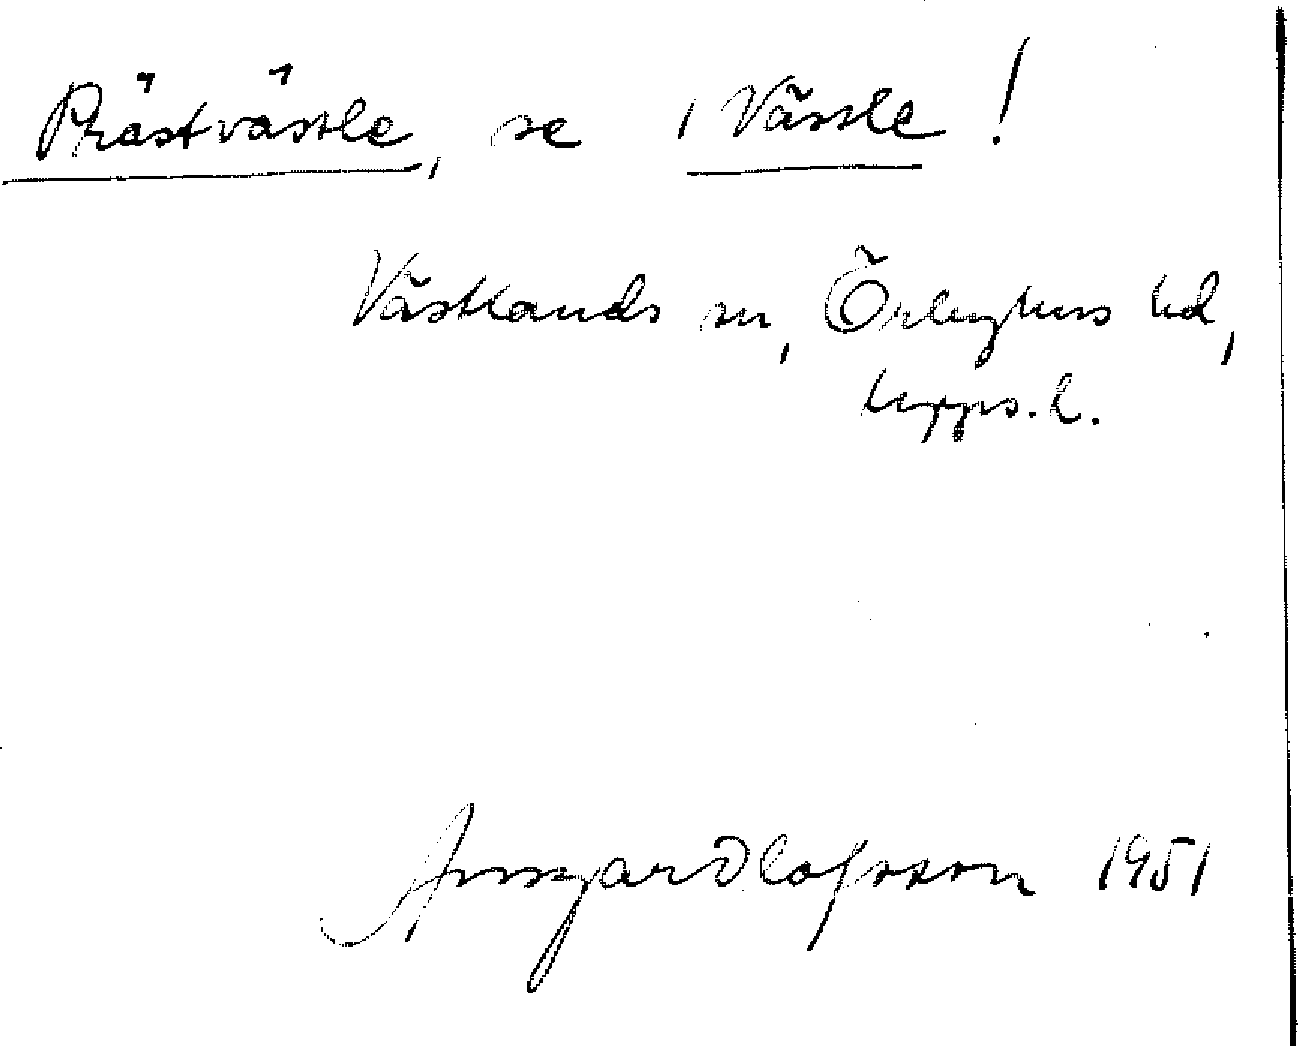 Prästvässle, se 1 Vässle!
Västlands sn, Örbyhus hd,
Upps. l.
Ansgar Olofsson 1951